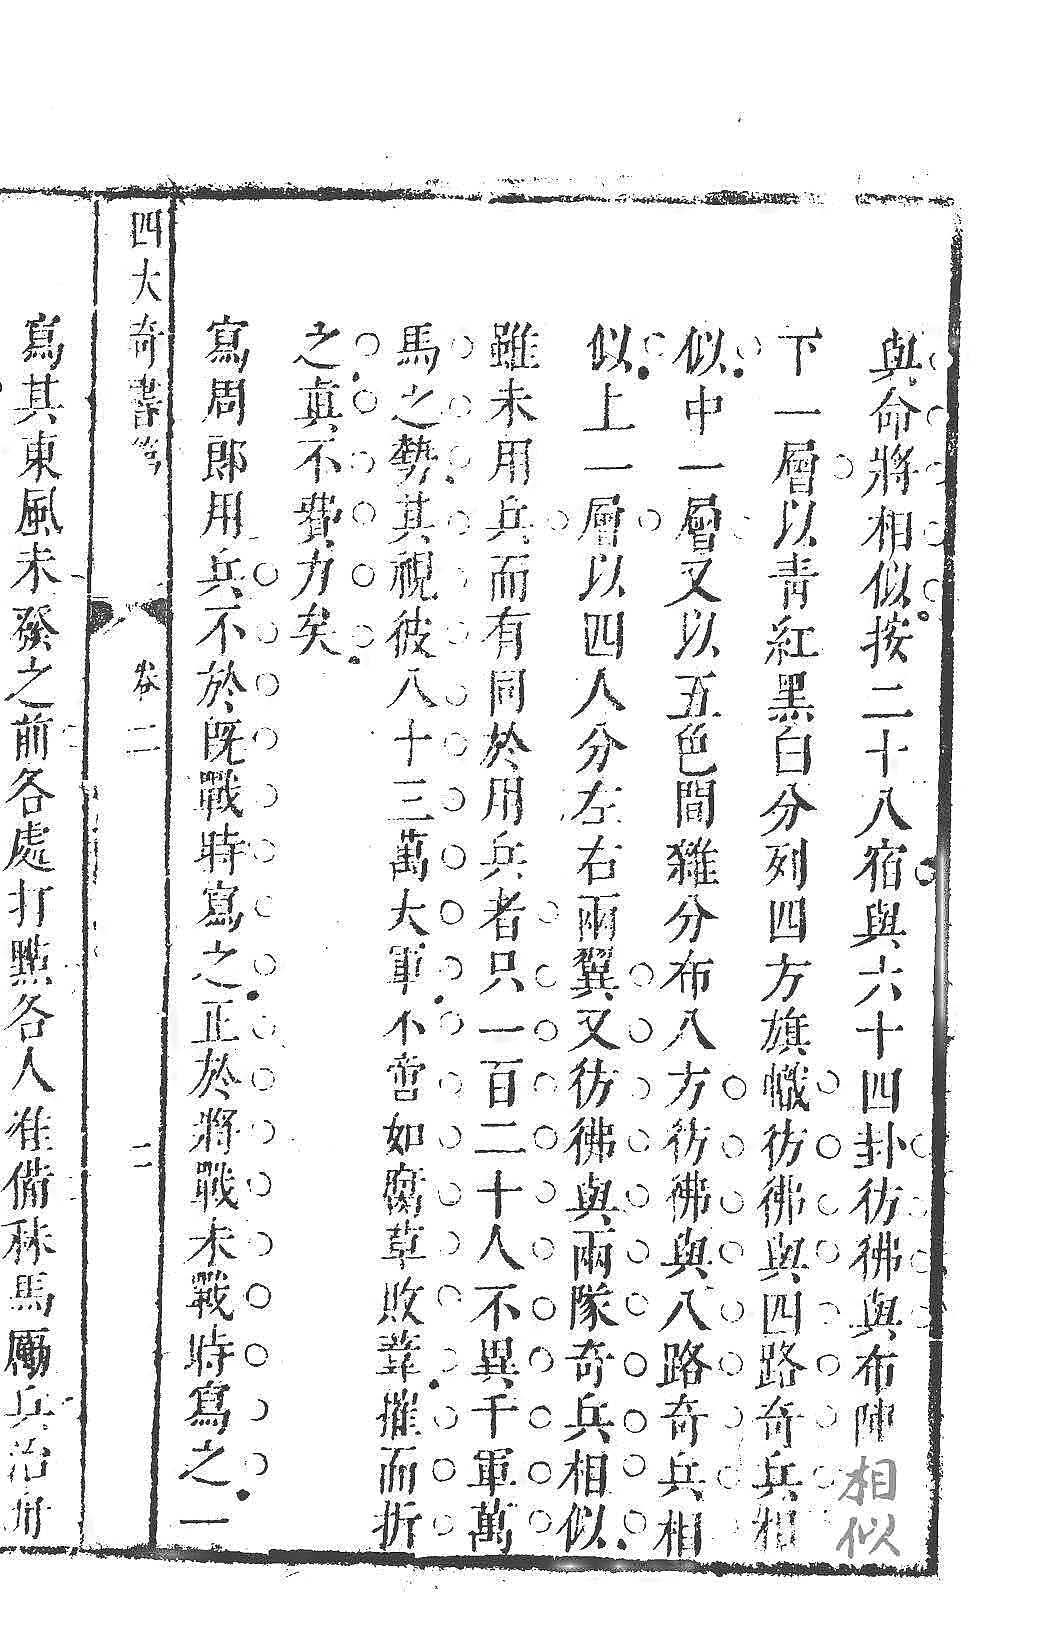 與命將相似按二十八宿與六十四卦彷彿與布陣相似
下一層以青紅黑白分列四方旗幟彷彿與四路奇兵相
似中一層又以五色間雜分布八方彷彿與八路奇兵相
似上一層以四人分左右兩翼又彷彿與兩隊奇兵相似
雖未用兵而有同於用兵者只一百二十人不異千軍萬
馬之勢其視彼八十三萬大軍不啻如腐草敗葦摧而折
之真不費力矣
寫周郎用兵不於既戰時寫之正於將戰未戰時寫之一
四大奇書第 卷二 二
寫其東風未發之前各處打點各人准備秣馬厲兵治舟